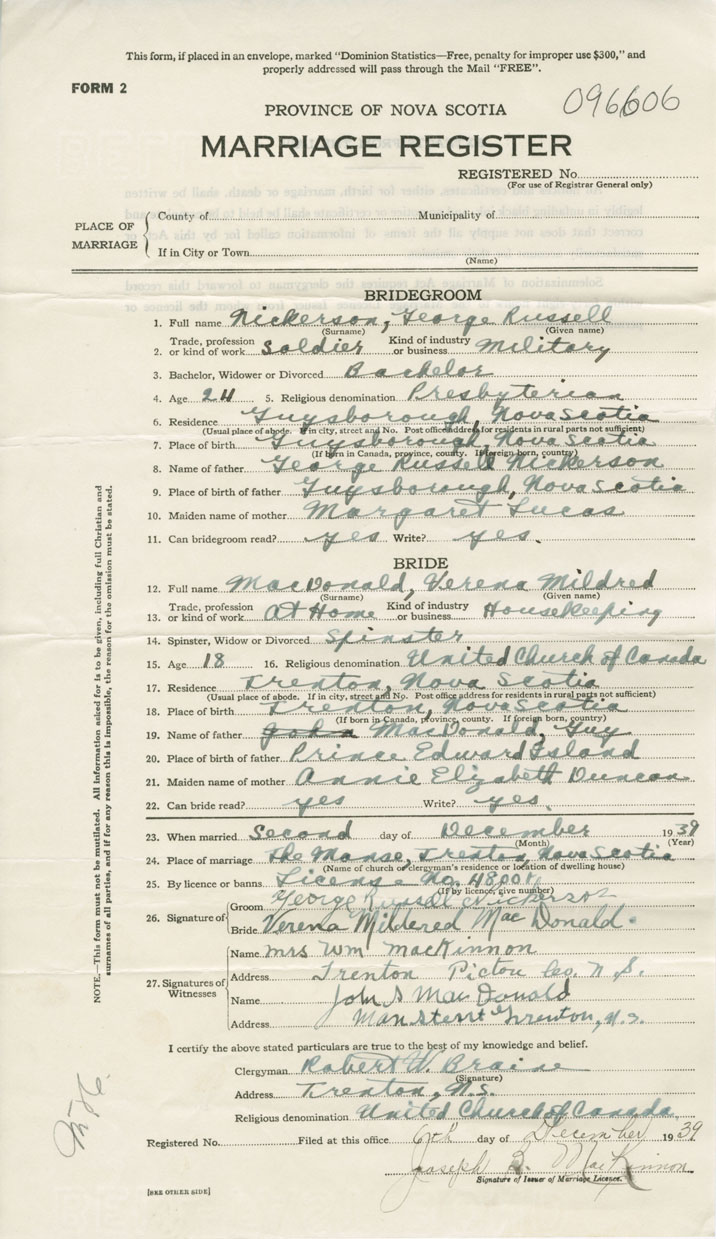 This form, if placed in an envelope, marked "Dominion Statistics—Free, penalty for improper use $300," and
properly addressed will pass through the Mail "FREE".
FORM 2
096606
PROVINCE OF NOVA SCOTIA
MARRIAGE REGISTER
REGISTERED No.
(For use of Registrar General only)
PLACE OF MARRIAGE
County of Municipality of
If in City or Town
(Name)
BRIDEGROOM
1. Full name Nickerson, George Russell
(Surname) (Given name)
2. Trade, profession or kind of work Soldier Kind of industry or business Military
3. Bachelor, Widower or Divorced Bachelor
4. Age 24 5. Religious denomination Presbyterian
6. Residence Guysborough, Nova Scotia
(Usual place of abode. If in city, street and No. Post office address for residents in rural parts not sufficient)
7. Place of birth Guysborough, Nova Scotia
(If born in Canada, province, county. If foreign born, country)
8. Name of father George Russell Nickerson
9. Place of birth of father Guysborough, Nova Scotia
10. Maiden name of mother Margaret Lucas
11. Can bridegroom read? yes Write? yes.
BRIDE
12. Full name MacDonald, Verena Mildred
(Surname) (Given name)
13. Trade, profession or kind of work At Home Kind of industry or business Housekeeping
14. Spinster, Widow or Divorced Spinster
15. Age 18 16. Religious denomination United Church of Canada
17. Residence Trenton, Nova Scotia
(Usual place of abode. If in city, street and No. Post office address for residents in rural parts not sufficient)
18. Place of birth Trenton, Nova Scotia
(If born in Canada, province, county. If foreign born, country)
19. Name of father John MacDonald, Guy
20. Place of birth of father Prince Edward Island
21. Maiden name of mother Annie Elizabeth Duncan
22. Can bride read? yes Write? yes.
23. When married Second day of December 1939
(Month) (Year)
24. Place of marriage The Manse, Trenton, Nova Scotia
(Name of church or clergyman's residence or location of dwelling house)
25. By licence or banns License No. 48001
(If by licence, give number)
26. Signature of
Groom George Russell Nickerson
Bride Verena Mildered MacDonald.
27. Signatures of Witnesses
Name Mrs Wm MacKinnon
Address Trenton Pictou Co. N.S.
Name John S MacDonald
Address Trenton, N.S.
I certify the above stated particulars are true to the best of my knowledge and belief.
Clergyman Robert W. Braine
(Signature)
Address Trenton, N.S.
Religious denomination United Church of Canada
Registered No. Filed at this office 6th day of December 1939
Joseph B. MacKinnon
Signature of Issuer of Marriage Licence.
[SEE OTHER SIDE]
NOTE.—This form must not be mutilated. All information asked for is to be given, including full Christian and
surnames of all parties, and if for any reason this is impossible, the reason for the omission must be stated.